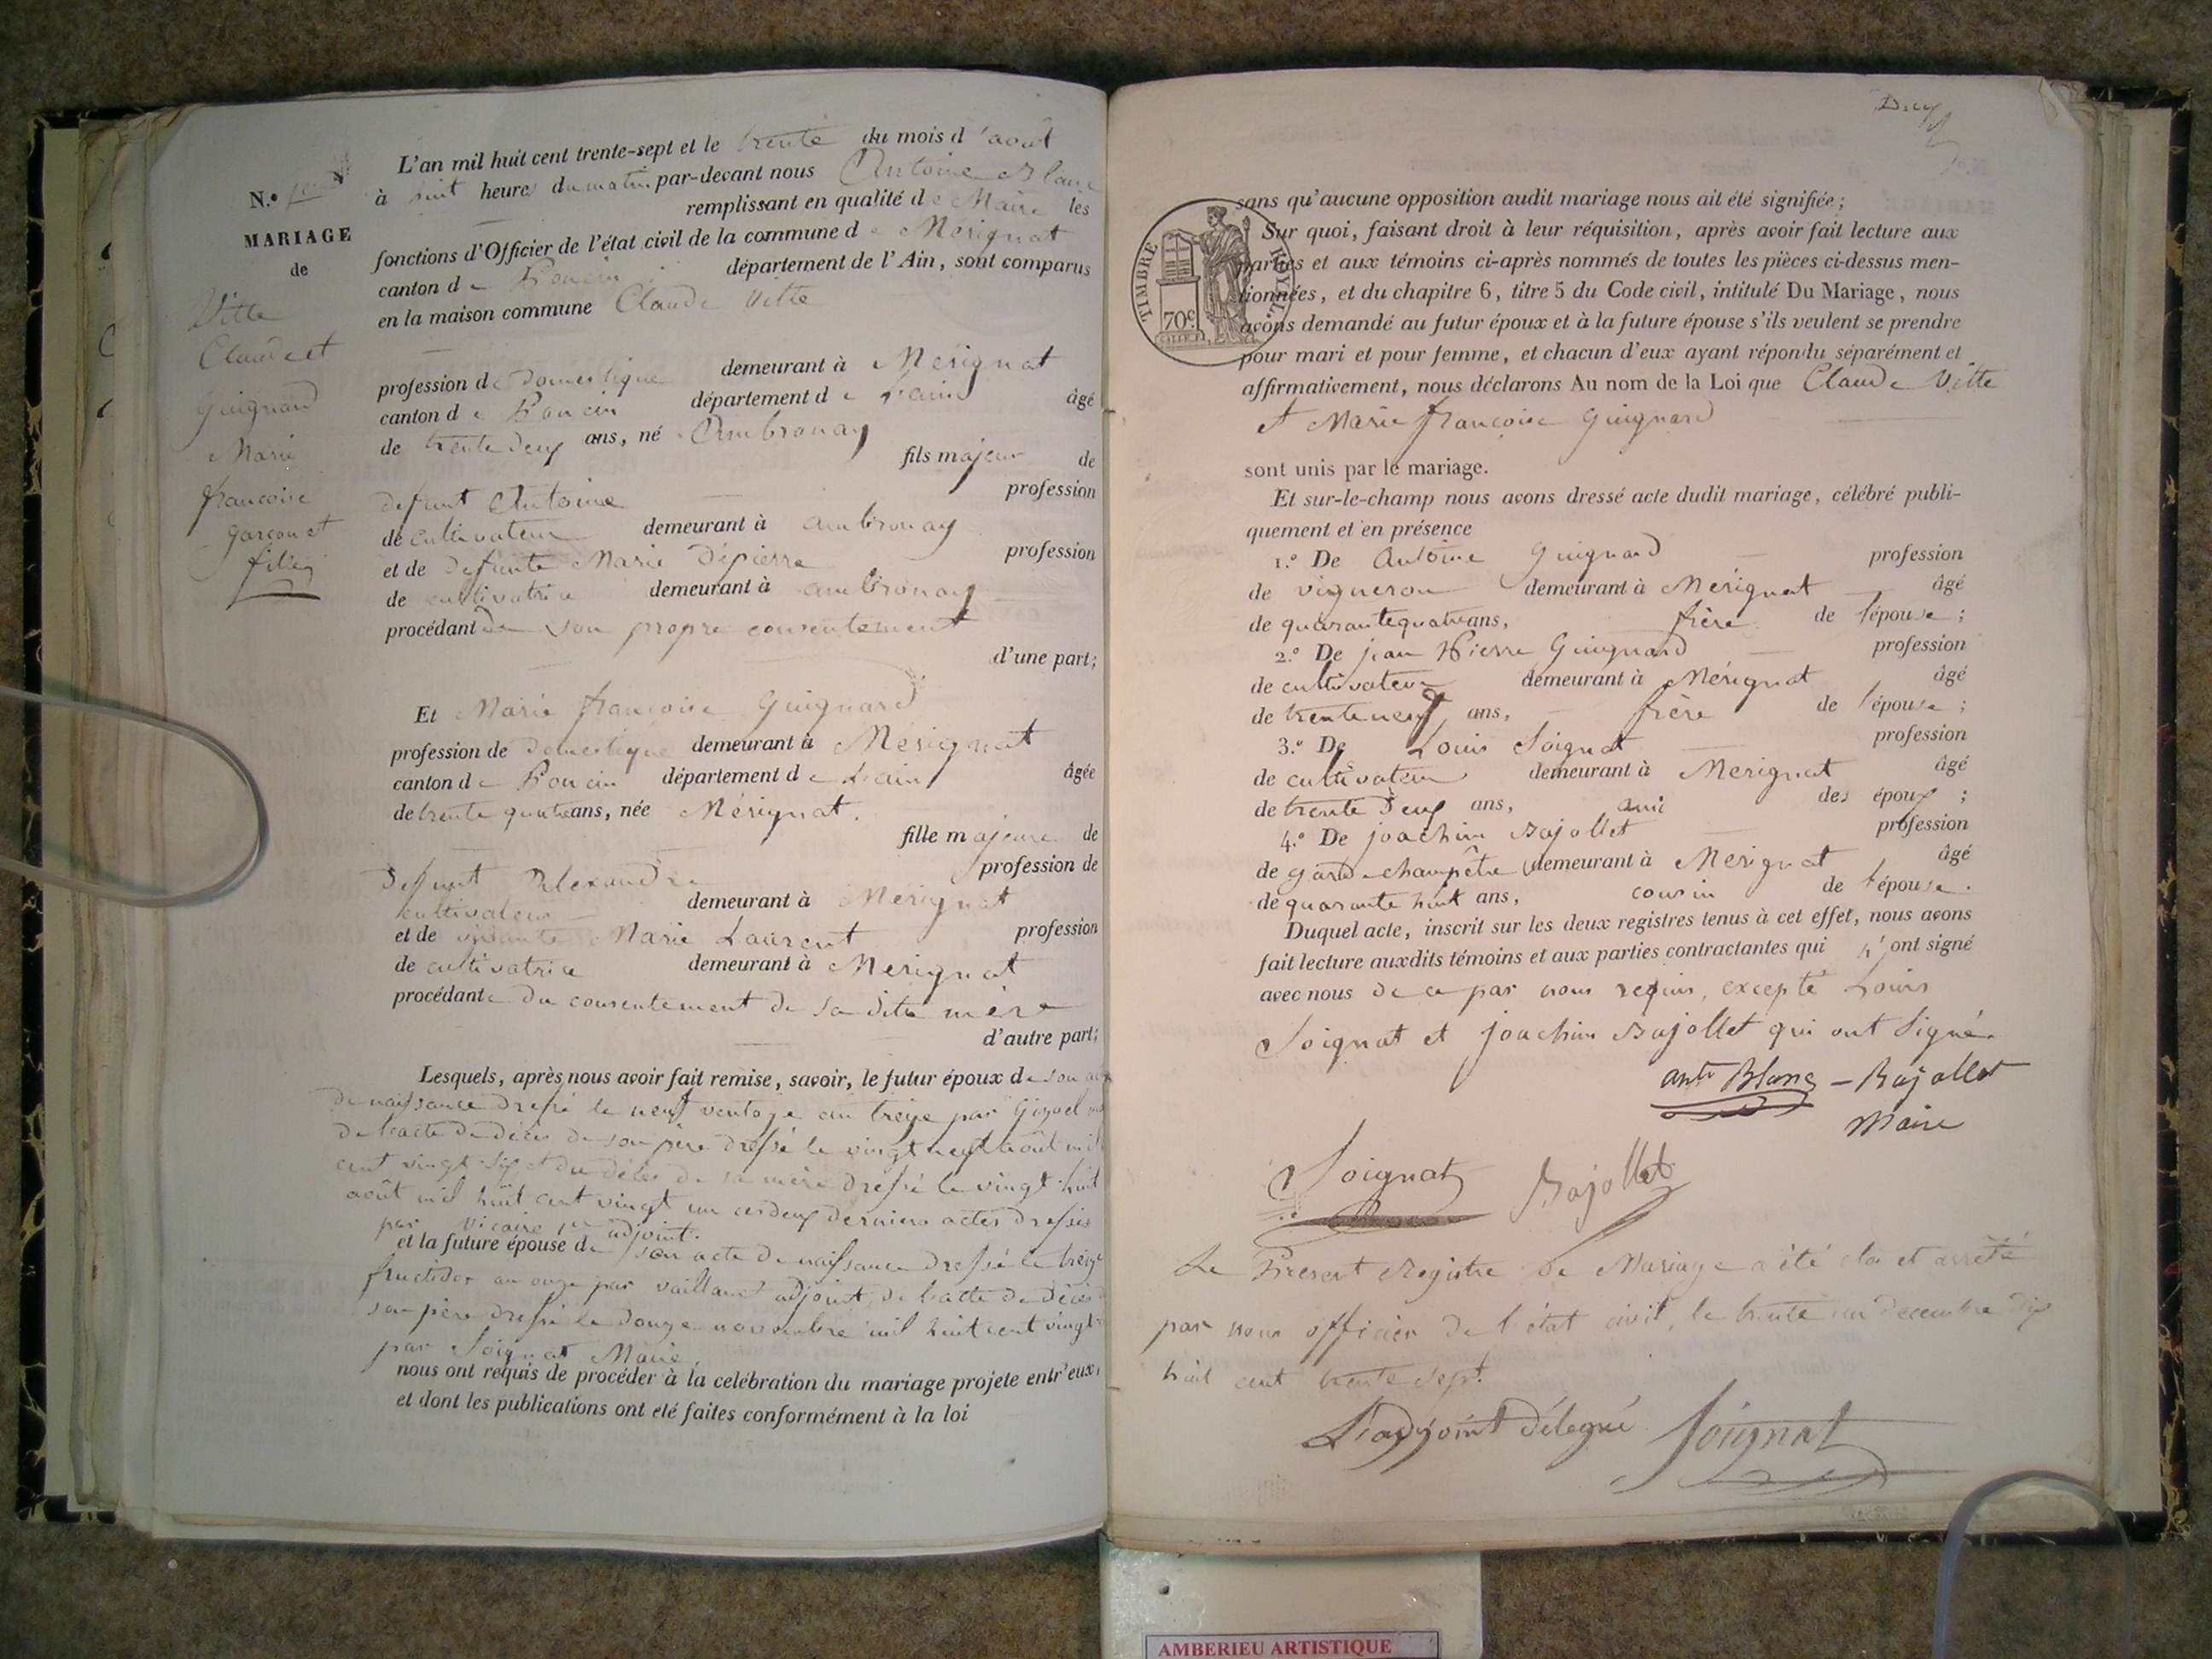 L'an mil huit cent trente-sept et le trente du mois d'août
N.º
à huit heures du matin par-devant nous Antoine Blanc
remplissant en qualité de Maire les
MARIAGE
fonctions d'Officier de l'état civil de la commune de Mérignat
de
canton de Poncin département de l'Ain, sont comparus
en la maison commune Claude Vitte
Vitte
Claude et
Guignard
Marie
françoise
garçon et
filles
profession de domestique demeurant à Mérignat
canton de Poncin département de l'ain âgé
de trente deux ans, né Ambronay
fils majeur de
defunt Antoine profession
de cultivateur demeurant à ambronay
et de defunte Marie Dépierre profession
de cultivatrice demeurant à ambronay
procédant de son propre consentement
d'une part;
Et Marie françoise Guignard
profession de domestique demeurant à Mérignat
canton de Poncin département de l'ain âgée
de trente quatre ans, née Mérignat.
fille majeure de
Defunt Alexandre profession de
cultivateur demeurant à Mérignat
et de vivante Marie Laurent profession
de cultivatrice demeurant à Mérignat
procédante du consentement de sa dite mère
d'autre part;
Lesquels, après nous avoir fait remise, savoir, le futur époux de son
de naissance dressé le neuf ventose an treize par
de l'acte de décès de son père dressé le vingt neuf août mil
cent vingt six et du décès de sa mère dressé le vingt huit
août mil huit cent vingt un ces deux derniers actes dressés
par vicaire adjoint.
et la future épouse de son acte de naissance dressé le treize
fructidor an onze par vaillant adjoint, de l'acte de décès
son père dressé le douze novembre mil huit cent vingt
par Soignat Maire,
nous ont requis de procéder à la celébration du mariage projete entr'eux,
et dont les publications ont été faites conformément à la loi
sans qu'aucune opposition audit mariage nous ait été signifiée;
TIMBRE ROYAL
70c
Sur quoi, faisant droit à leur réquisition, après avoir fait lecture aux
parties et aux témoins ci-après nommés de toutes les pièces ci-dessus men-
tionnées, et du chapitre 6, titre 5 du Code civil, intitulé Du Mariage, nous
avons demandé au futur époux et à la future épouse s'ils veulent se prendre
pour mari et pour femme, et chacun d'eux ayant répondu séparément et
affirmativement, nous déclarons Au nom de la Loi que Claude Vitte
et Marie françoise Guignard
sont unis par le mariage.
Et sur-le-champ nous avons dressé acte dudit mariage, célébré publi-
quement et en présence
1.º De Antoine Guignard profession
de vigneron demeurant à Mérignat âgé
de quarante quatre ans, frère de l'épouse;
2.º De jean Pierre Guignard profession
de cultivateur demeurant à Mérignat âgé
de trente neuf ans, frère de l'épouse;
3.º De Louis Soignat profession
de cultivateur demeurant à Mérignat âgé
de trente deux ans, ami des époux;
4.º De joachim Bajollet profession
de garde champêtre demeurant à Mérignat âgé
de quarante huit ans, cousin de l'épouse.
Duquel acte, inscrit sur les deux registres tenus à cet effet, nous avons
fait lecture auxdits témoins et aux parties contractantes qui n'ont signé
avec nous de ce par nous requis, excepté Louis
Soignat et joachim Bajollet qui ont signé.
ant Blanc - Bajollet
Maire
Soignat Bajollet
Le Present Registre de Mariage a été clos et arrêté
par nous officier de l'état civil, le trente un decembre dix
huit cent trente sept.
L'adjoint délégué Soignat
AMBERIEU ARTISTIQUE